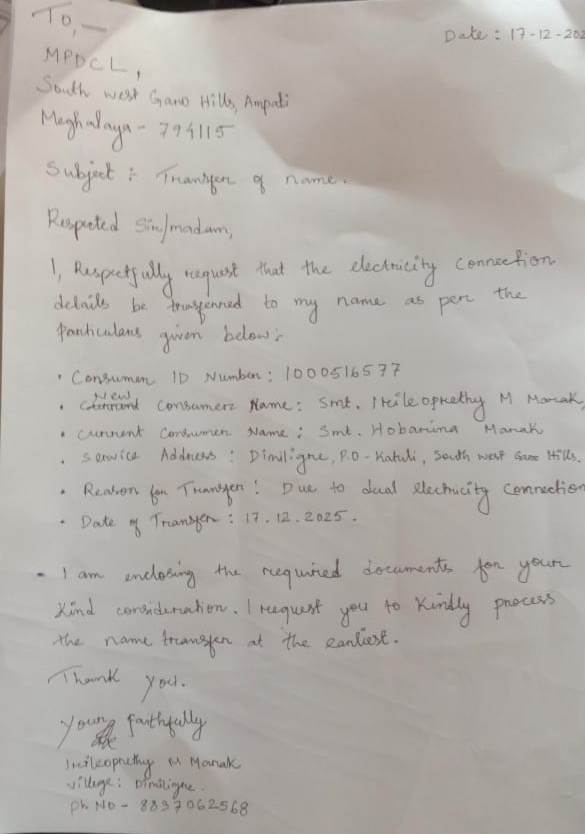 To,
Date : 17-12-202
MPDCL,
South West Garo Hills, Ampati
Meghalaya - 794115
Subject : Transfer of name.
Respected Sir/madam,
I, Respectfully request that the electricity connection
details be trasferred to my name as per the
Particulars given below:-
• Consumer ID Number : 1000516577
• New Consumer Name : Smt. M Marak,
• Current Consumer Name : Smt. Hobarina Marak
• Service Address : Dimiligre, P.O - Katuli, South West Garo Hills.
• Reason for Transfer : Due to dual electricity connection
• Date of Transfer : 17.12.2025.
- I am enclosing the required documents for your
kind consideration. I request you to kindly process
the name transfer at the earliest.
Thank you.
Your faithfully
M Marak
village : Dimiligre.
Ph No - 8837062568